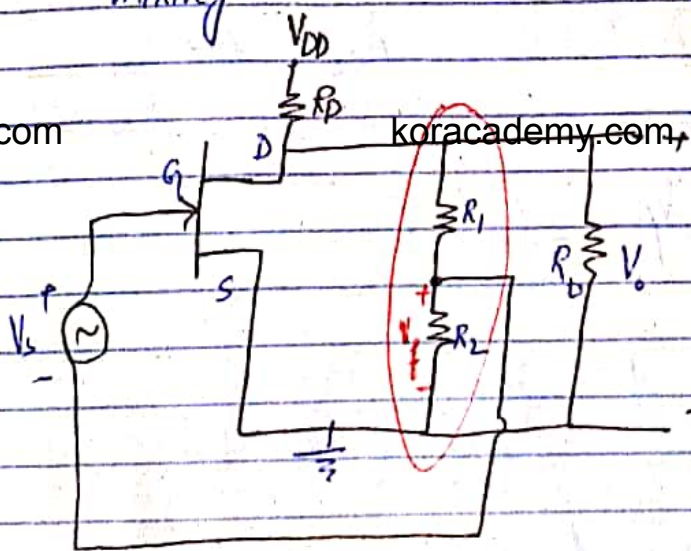 V_DD
R_D
.com
koracademy.com
D
+
G
R_1
S
+
R_L V_o
+
V_s
V_f
R_2
-
-